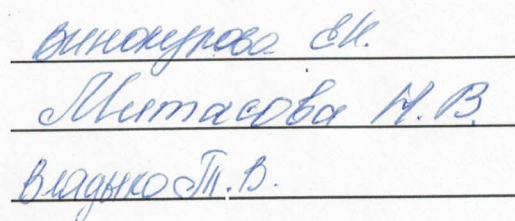 Винокурова Е.Н.
Митасова Н.В.
Владыко Т.В.